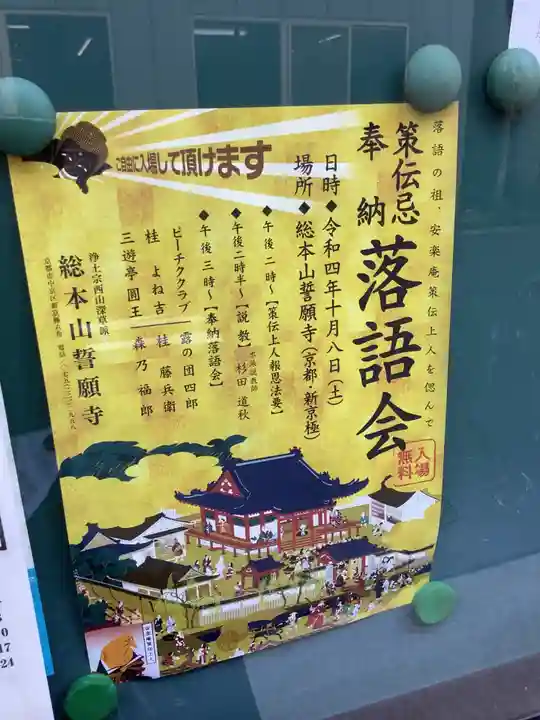 落語の祖、安楽庵策伝上人を偲んで
策伝忌
奉納
落語会
入場
無料
日時◆令和四年十月八日(土)
場所◆総本山誓願寺(京都・新京極)
◆午後二時~【策伝上人報恩法要】
◆午後二時半~【説教】本派説教師 杉田道秋
◆午後三時~【奉納落語会】
ピーチククラブ 露の団四郎
桂よね吉 桂藤兵衛
三遊亭圓王 森乃福郎
ご自由に入場して頂けます
浄土宗西山深草派
総本山誓願寺
安楽庵策伝上人
17
24